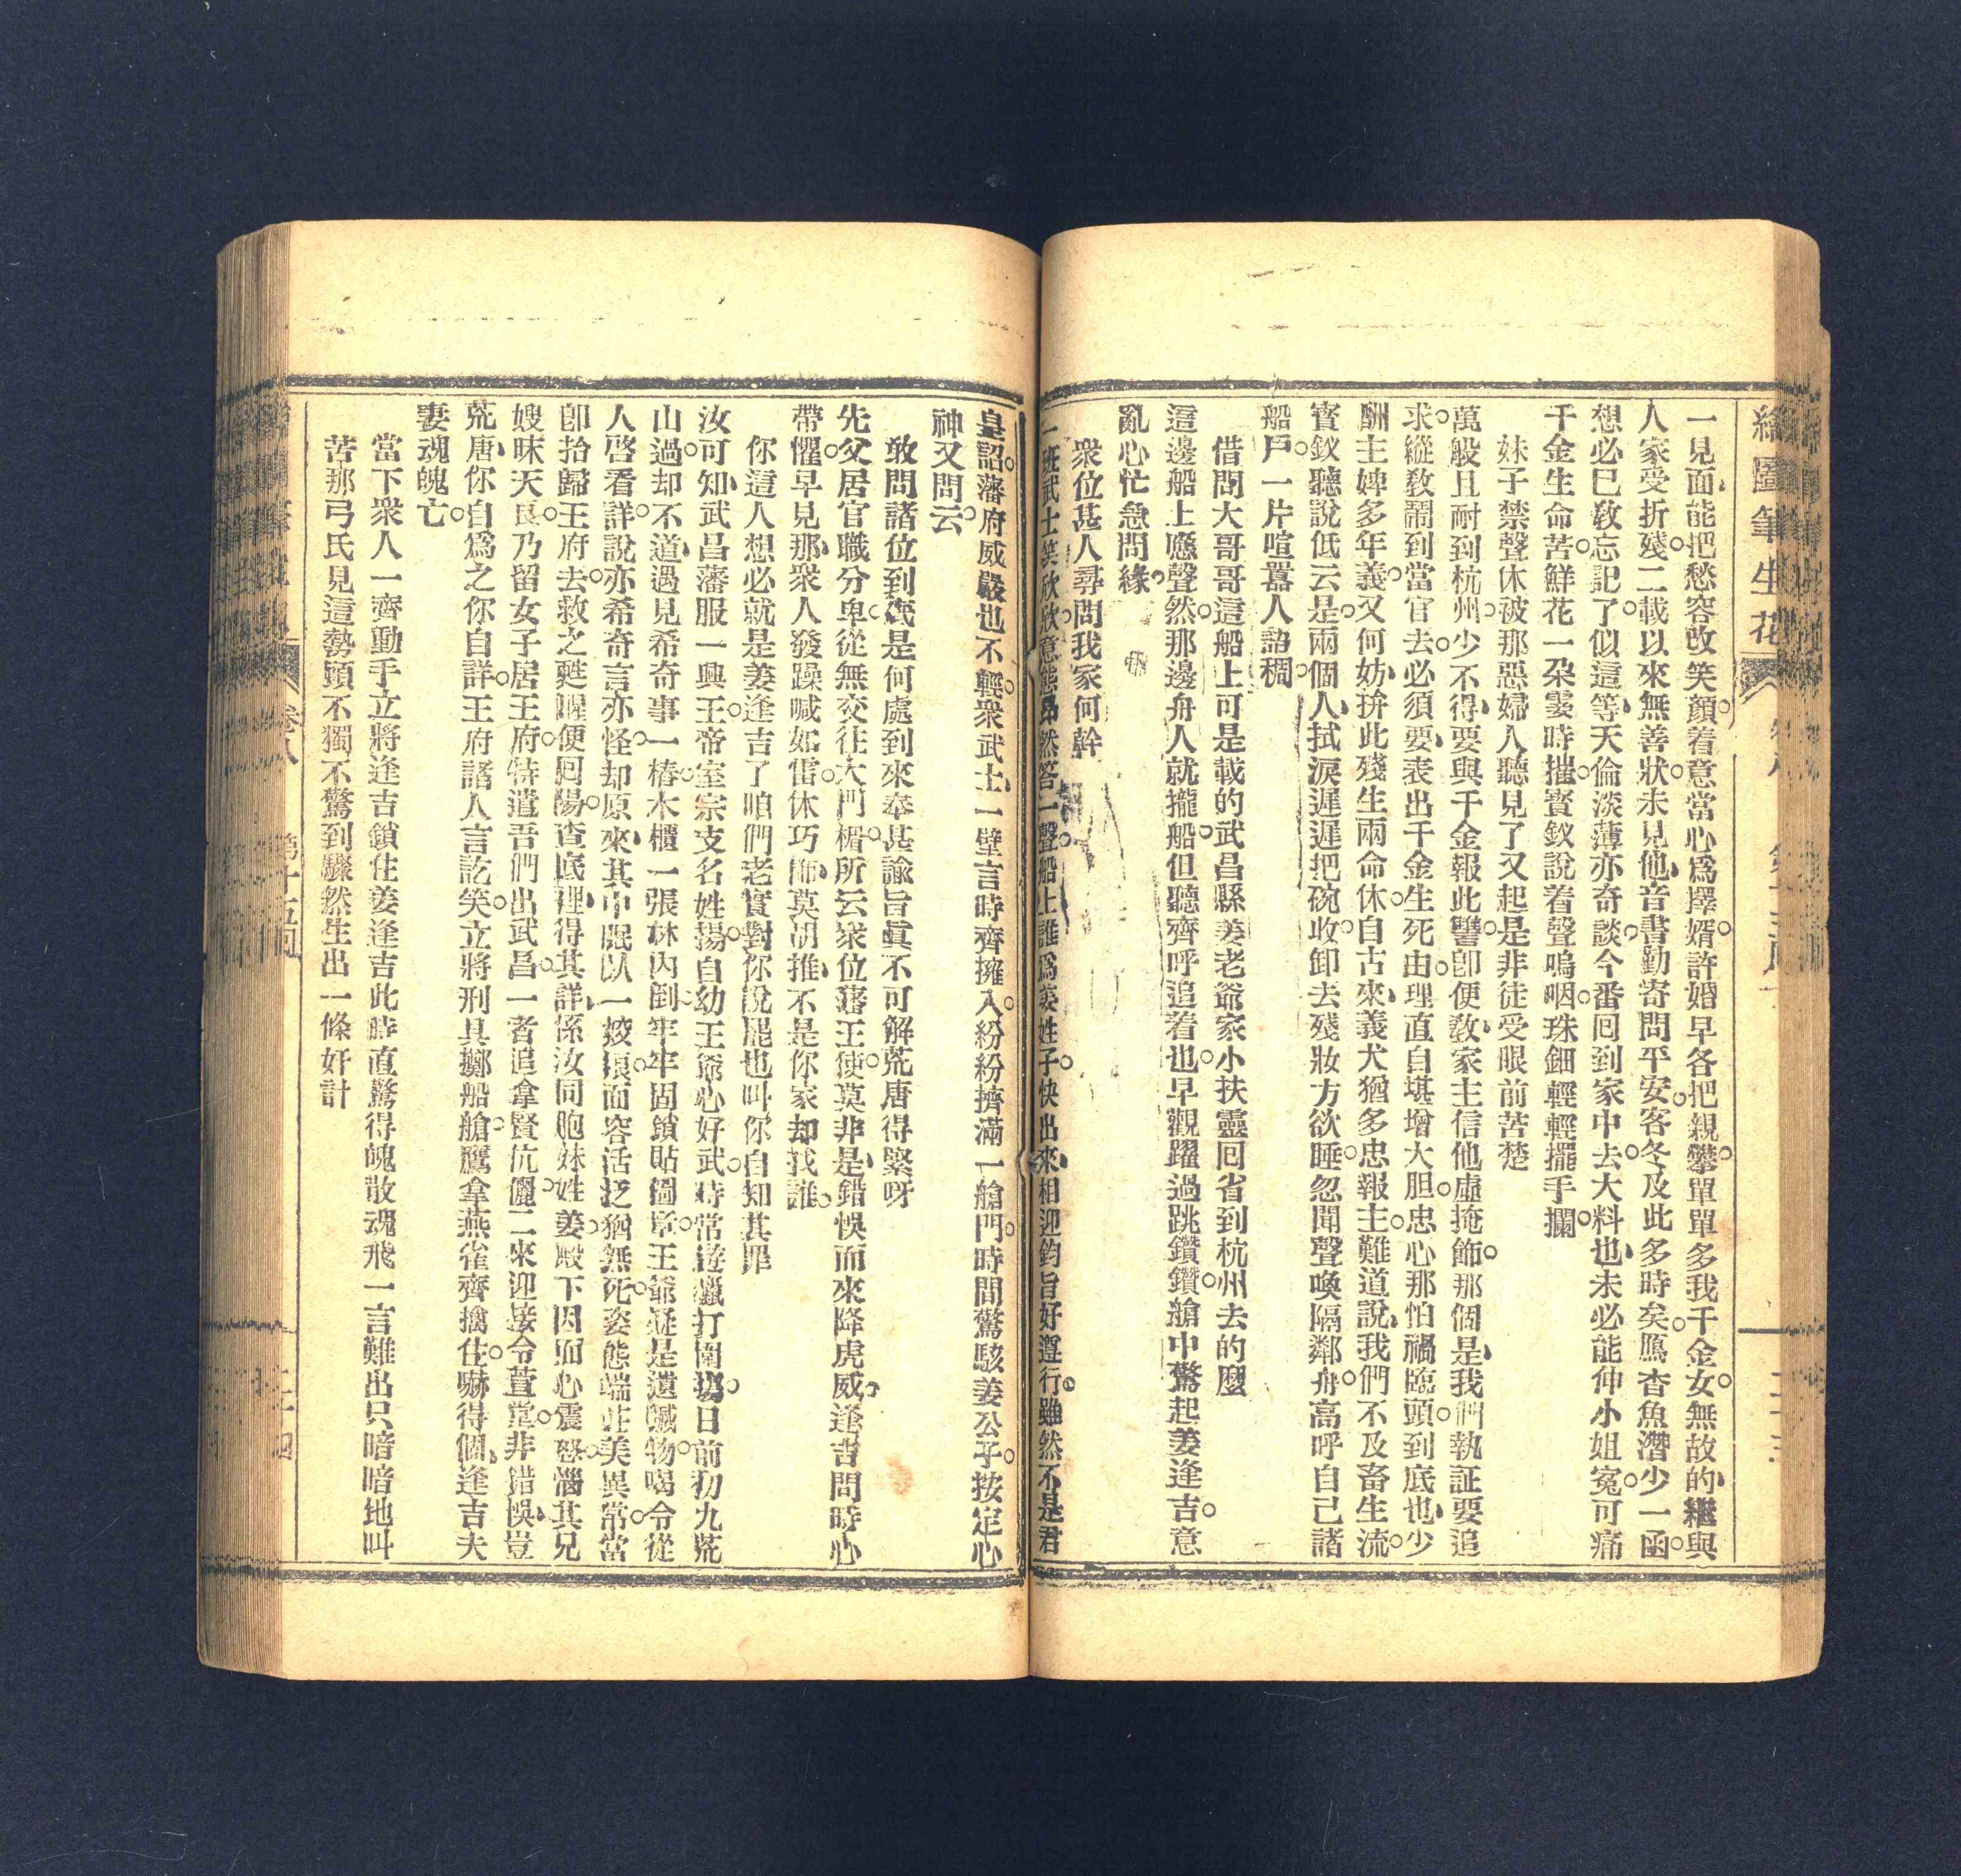 繪圖筆生花
一見面能把愁容改笑顔着意當心爲擇婿許婚早各把親攀單單多我千金女無故的繼與
人家受折殘二載以來無善狀未見他音書勤寄問平安客冬及此多時矣鴈杳魚潛少一函
想必已敎忘記了似這等天倫淡薄亦奇談今番回到家中去大料也未必能伸小姐寃可痛
千金生命苦鮮花一朶霎時摧寳釵說着聲嗚咽珠鈿輕輕擺手攔
妹子禁聲休被那惡婦人聽見了又起是非徒受眼前苦楚
萬般且耐到杭州少不得要與千金報此讐卽便敎家主信他虛掩飾那個是我們執証要追
求縱敎鬧到當官去必須要表出千金生死由理直自堪增大胆忠心那怕禍臨頭到底也少
酬主婢多年義又何妨拚此殘生兩命休自古來義犬猶多忠報主難道說我們不及畜生流
寳釵聽說低云是兩個人拭淚遲遲把碗收卸去殘妝方欲睡忽聞聲喚隔鄰舟高呼自己諸
船戶一片喧囂人語稠
借問大哥哥這船上可是載的武昌縣姜老爺家小扶靈回省到杭州去的麼
這邊船上應聲然那邊舟人就攏船但聽齊呼追着也早觀躍過跳鑽鑽艙中驚起姜逢吉意
亂心忙急問緣
衆位甚人尋問我家何幹
一班武士笑欣欣意態昂然答一聲船上誰爲姜姓子快出來相迎鈞旨好遵行雖然不是君
皇詔藩府威嚴也不輕衆武士一壁言時齊擁入紛紛擠滿一艙門時間驚駭姜公子按定心
神又問云
敢問諸位到底是何處到來奉甚諭旨眞不可解荒唐得緊呀
先父居官職分卑從無交往大門楣所云衆位藩王使莫非是錯悞而來降虎威逢吉問時心
帶懼早見那衆人發躁喊如雷休巧飾莫胡推不是你家却找誰
你這人想必就是姜逢吉了咱們老實對你說罷也叫你自知其罪
汝可知武昌藩服一興王帝室宗支名姓揚自幼王爺心好武時常遊獵打圍塲日前初九荒
山過却不道遇見希奇事一樁木櫃一張林內倒牢牢固鎖貼圖章王爺疑是遺贓物喝令從
人啓看詳說亦希奇言亦怪却原來其中眠以一嬌娘面容活泛猶無死姿態端莊美異常當
卽抬歸王府去救之甦醒便回陽查底裡得其詳係汝同胞妹姓姜殿下因而心震怒惱其兄
嫂昧天良乃留女子居王府特遣吾們出武昌一者追拿賢伉儷二來迎接令萱堂非錯悞豈
荒唐你自爲之你自詳王府諸人言訖笑立將刑具擲船艙鷹拿燕雀齊擒住嚇得個逢吉夫
妻魂魄亡
當下衆人一齊動手立將逢吉鎖住姜逢吉此時直驚得魄散魂飛一言難出只暗暗地叫
苦那弓氏見這勢頭不獨不驚到驟然生出一條奸計
卷八
第十五回
二十四